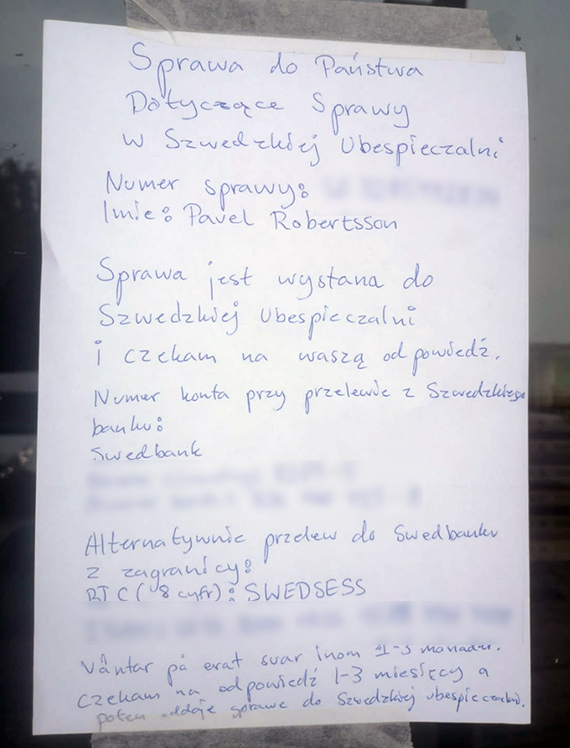 Sprawa do Państwa
Dotyczące Sprawy
w Szwedzkiej Ubespieczalni
Numer sprawy:
Imie: Pavel Robertsson
Sprawa jest wystana do
Szwedzkiej Ubespieczalni
i czekam na waszą odpowiedź.
Numer konta przy przelewie z Szwedzkiego
banku:
Swedbank
Alternatywnie przelew do Swedbanku
z zagranicy:
(8 cyfr): SWEDSESS
Väntar på erat svar inom 1-3 månader.
Czekam na odpowiedź 1-3 miesięcy a
potem oddaje sprawe do Szwedzkiej ubespieczalni.